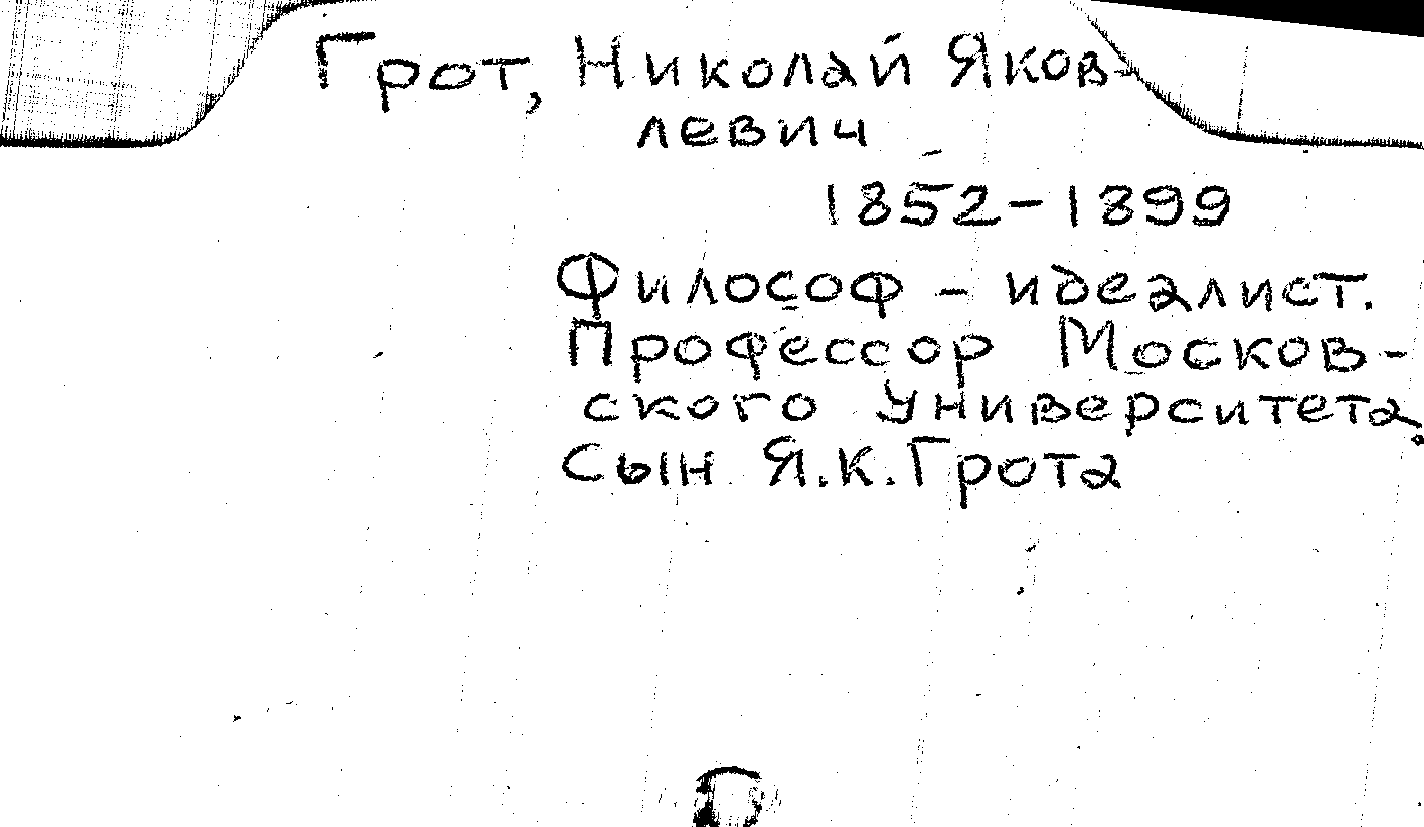 Грот, Николай Яков-
левич
1852-1899
Философ - идеалист.
Профессор Москов-
ского университета.
Сын Я.К.Грота